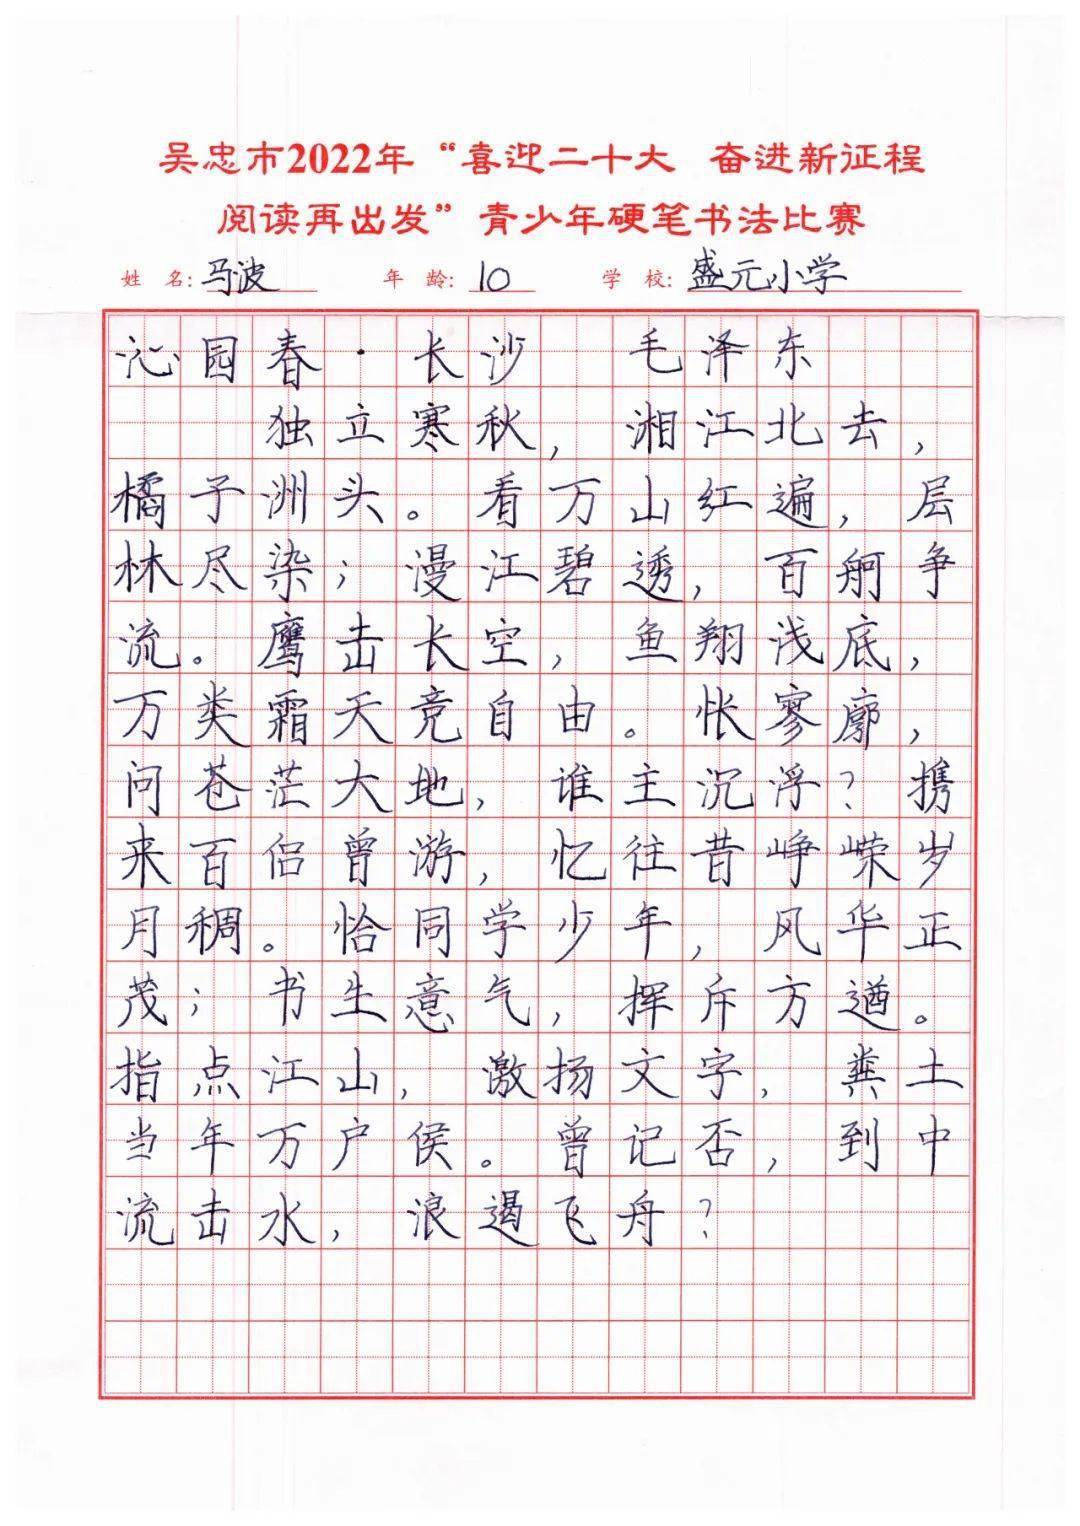 吴忠市2022年“喜迎二十大 奋进新征程
阅读再出发”青少年硬笔书法比赛
姓 名:马波 年 龄:10 学 校:盛元小学
沁园春·长沙 毛泽东
独立寒秋，湘江北去，
橘子洲头。看万山红遍，层
林尽染；漫江碧透，百舸争
流。鹰击长空，鱼翔浅底，
万类霜天竞自由。怅寥廓，
问苍茫大地，谁主沉浮？携
来百侣曾游，忆往昔峥嵘岁
月稠。恰同学少年，风华正
茂；书生意气，挥斥方遒。
指点江山，激扬文字，粪土
当年万户侯。曾记否，到中
流击水，浪遏飞舟？